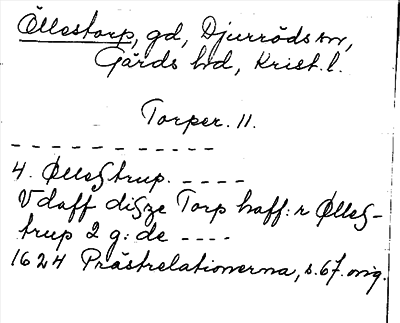 Öllestorp, gd, Djurröds sn,
Gärds hd, Krist. l.
Torper. 11.
- - - - - - - - - - -
4. Ølle§trup. - - - -
Vdaff di§ze Torp haff: r Ølle§-
trup 2 g: de - - - -
1624 Prästrelationerna, s. 67. orig.